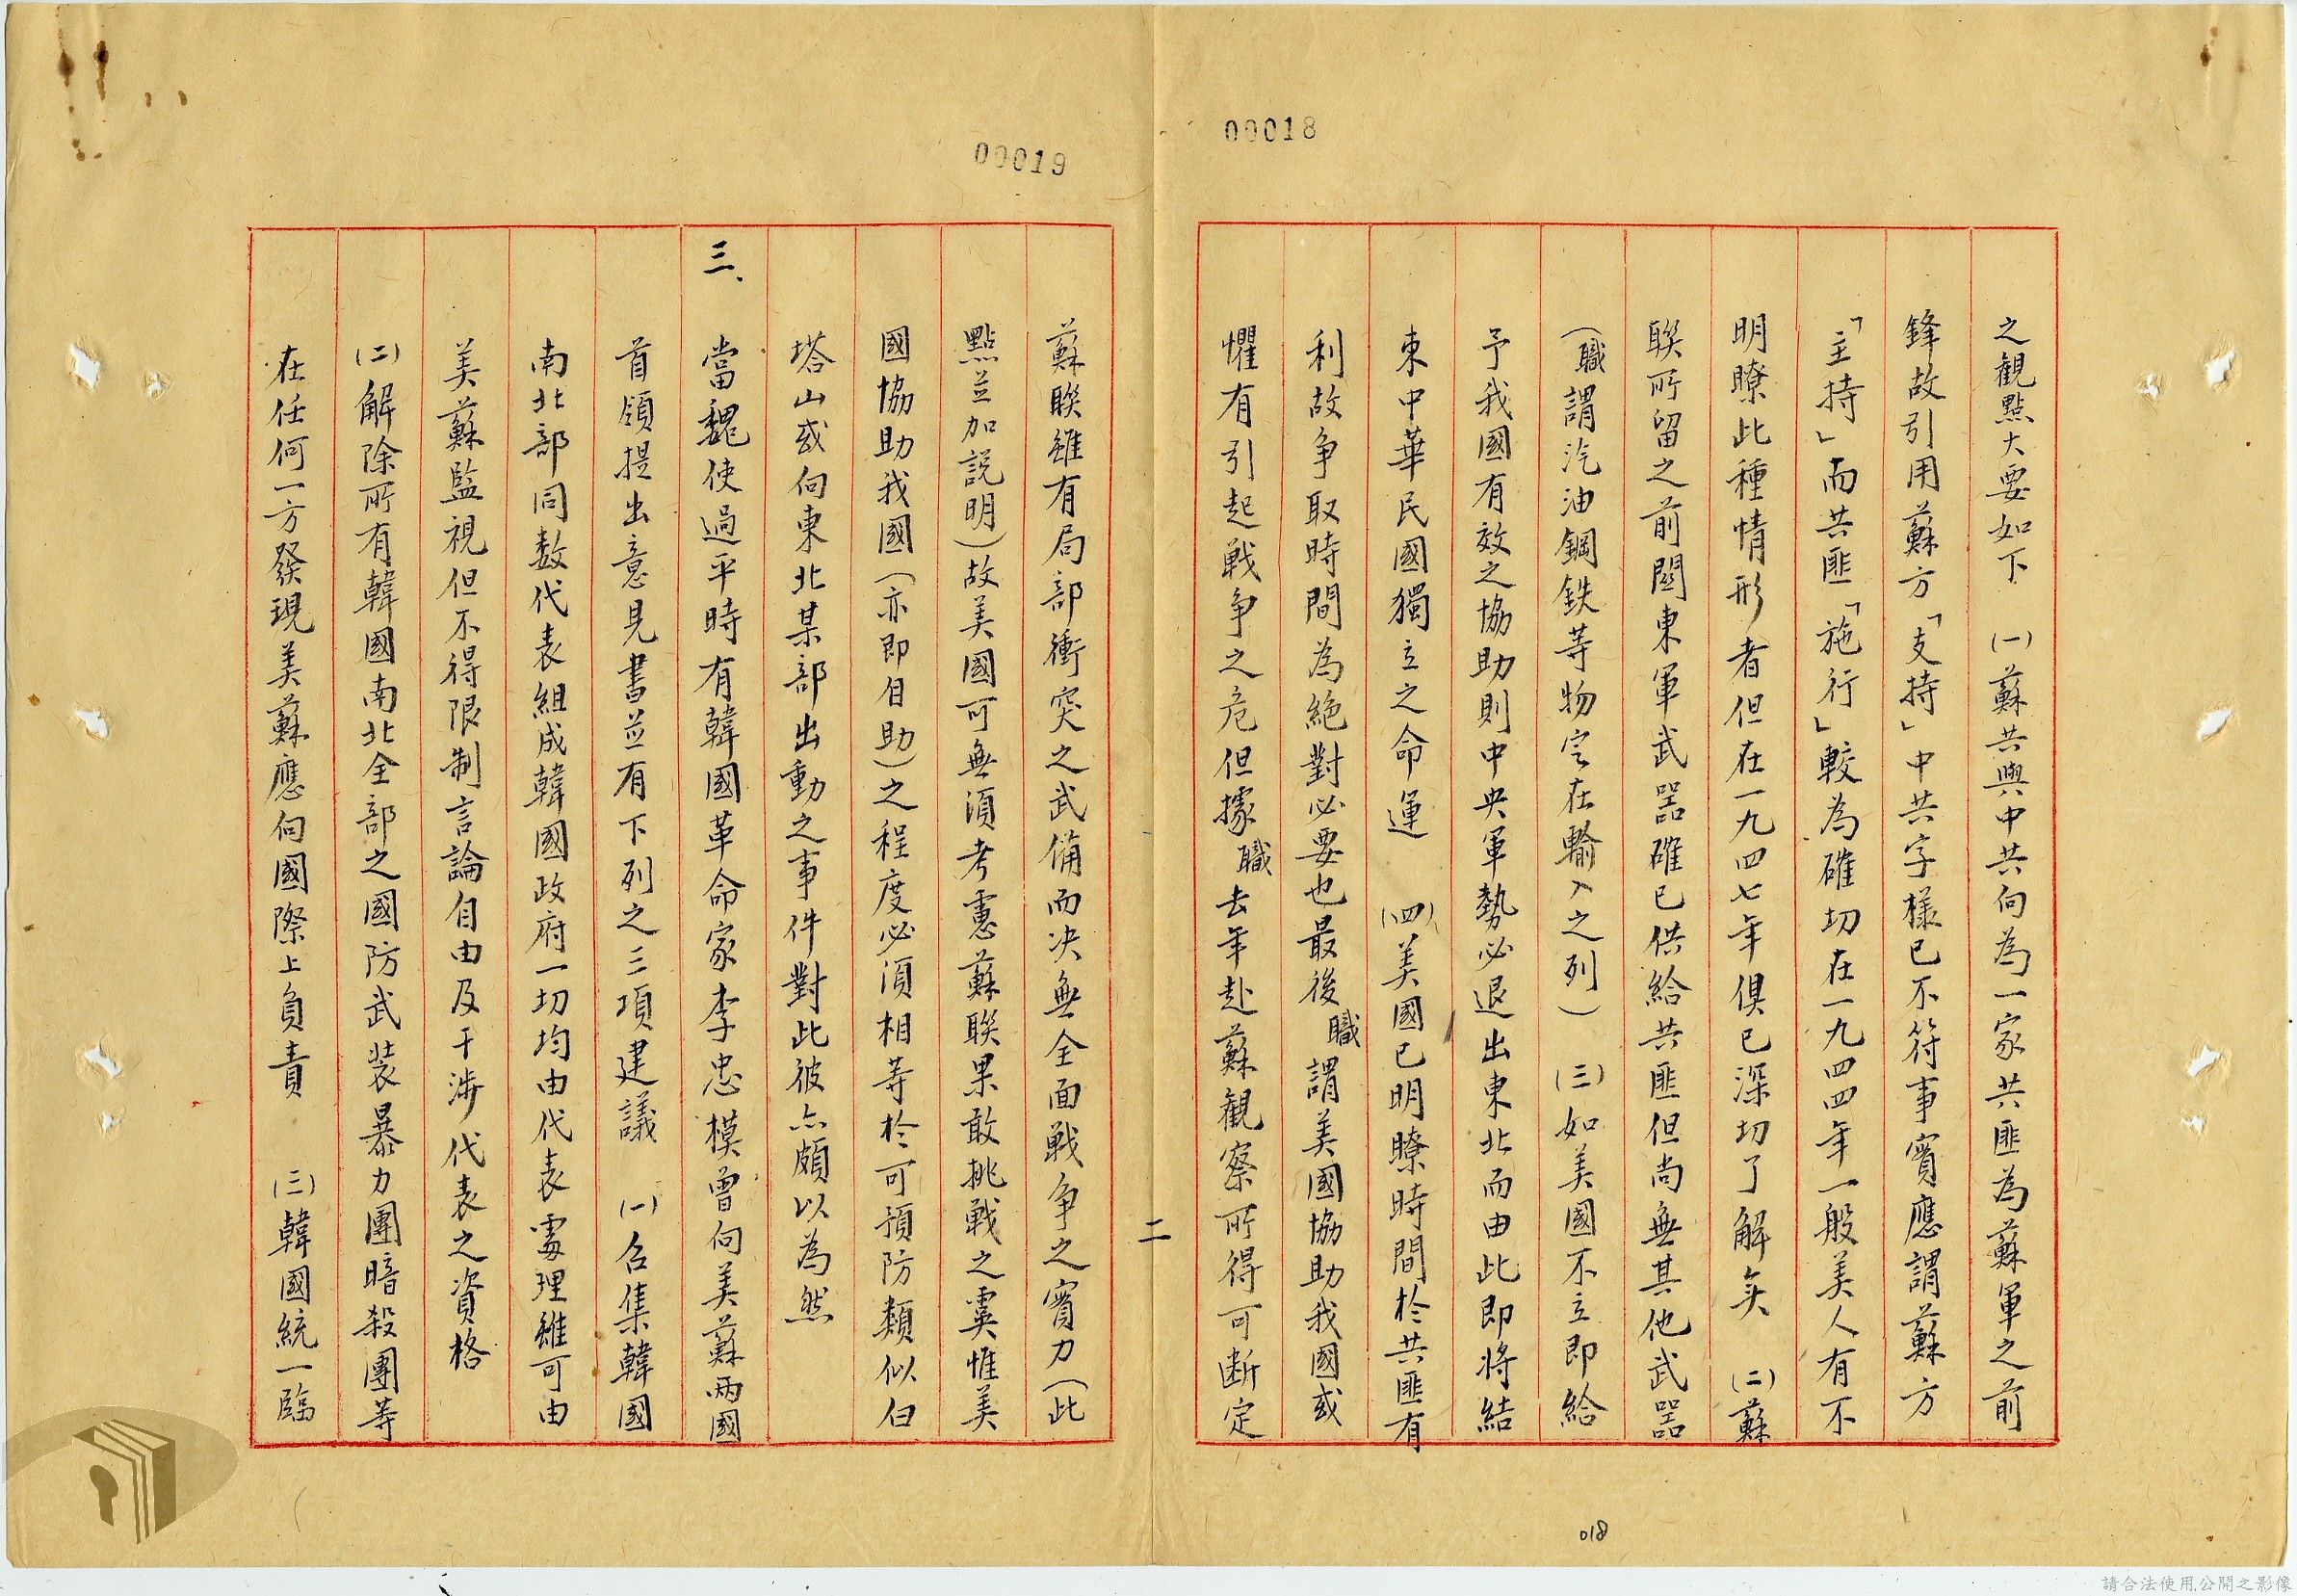 00018
之觀點大要如下 (一)蘇共與中共向為一家共匪為蘇軍之前
鋒故引用蘇方「支持」中共字樣已不符事實應謂蘇方
「主持」而共匪「施行」較為確切在一九四四年一般美人有不
明瞭此種情形者但在一九四七年俱已深切了解矣 (二)蘇
聯所留之前關東軍武器確已供給共匪但尚無其他武器
(職謂汽油鋼鉄等物定在輸入之列) (三)如美國不立即給
予我國有效之協助則中央軍勢必退出東北而由此即將結
束中華民國獨立之命運 (四)美國已明瞭時間於共匪有
利故争取時間為絶對必要也最後職謂美國協助我國或
懼有引起戰争之危但據職去年赴蘇觀察所得可断定
二
00019
蘇聯雖有局部衝突之武備而决無全面戰争之實力(此
點並加説明)故美國可無須考慮蘇聯果敢挑戰之虞惟美
國協助我國(亦即自助)之程度必須相等於可預防類似白
塔山或向東北某部出動之事件對此彼亦頗以為然
三、當魏使過平時有韓國革命家李忠模曾向美蘇兩國
首領提出意見書並有下列之三項建議 (一)召集韓國
南北部同数代表組成韓國政府一切均由代表處理雖可由
美蘇監視但不得限制言論自由及干涉代表之資格
(二)解除所有韓國南北全部之國防武装暴力團暗殺團等
在任何一方發現美蘇應向國際上負責 (三)韓國統一臨
018
請合法使用公開之影像